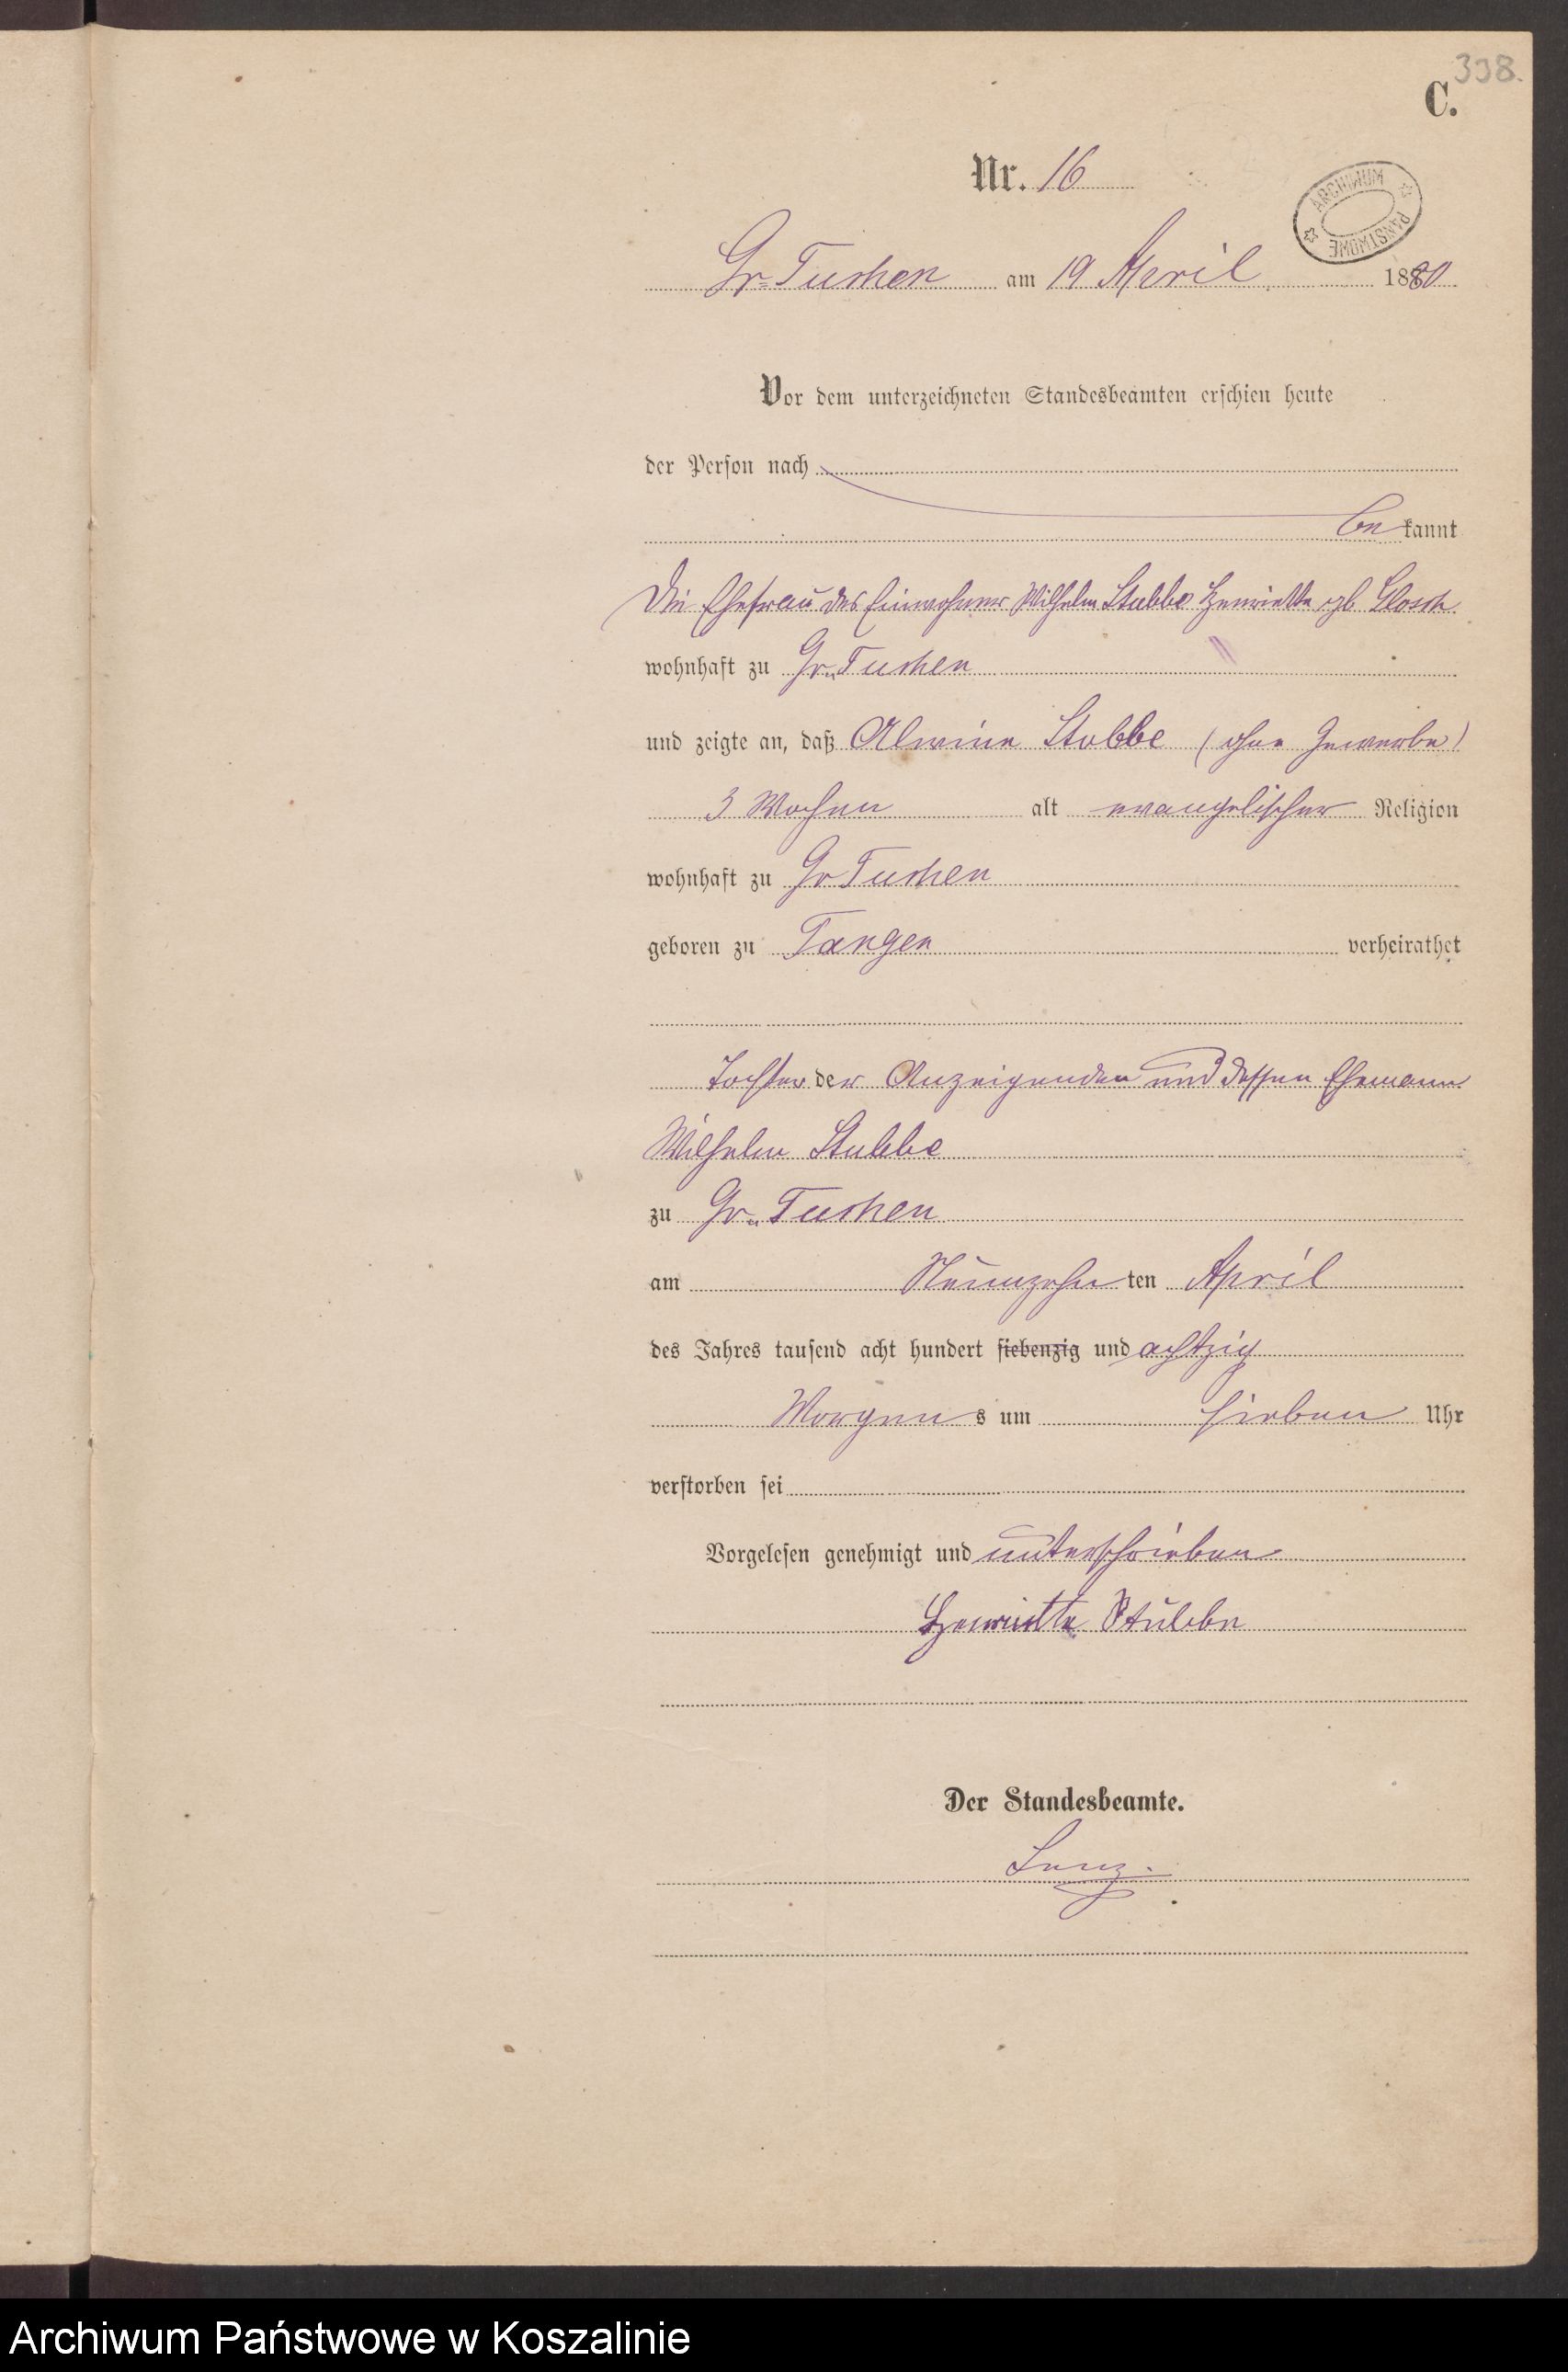 338.
C.
Nr. 16
ARCHIWUM PAŃSTWOWE
Gr. Tuchen am 19 April 1880
Vor dem unterzeichneten Standesbeamten erschien heute
der Person nach
bekannt
Die Ehefrau des Einwohner Wilhelm Stubbe Henriette gb
wohnhaft zu Gr. Tuchen
und zeigte an, daß Alwine Stubbe (ohne Gewerbe)
3 Wochen alt evangelischer Religion
wohnhaft zu Gr Tuchen
geboren zu Tangen verheirathet
Tochter der Anzeigenden und dessen Ehemann
Wilhelm Stubbe
zu Gr. Tuchen
am Neunzehnten April
des Jahres tausend acht hundert siebenzig und achtzig
Morgens um sieben Uhr
verstorben sei
Vorgelesen genehmigt und unterschrieben
Henriette Stubbe
Der Standesbeamte.
Lenz.
Archiwum Państwowe w Koszalinie